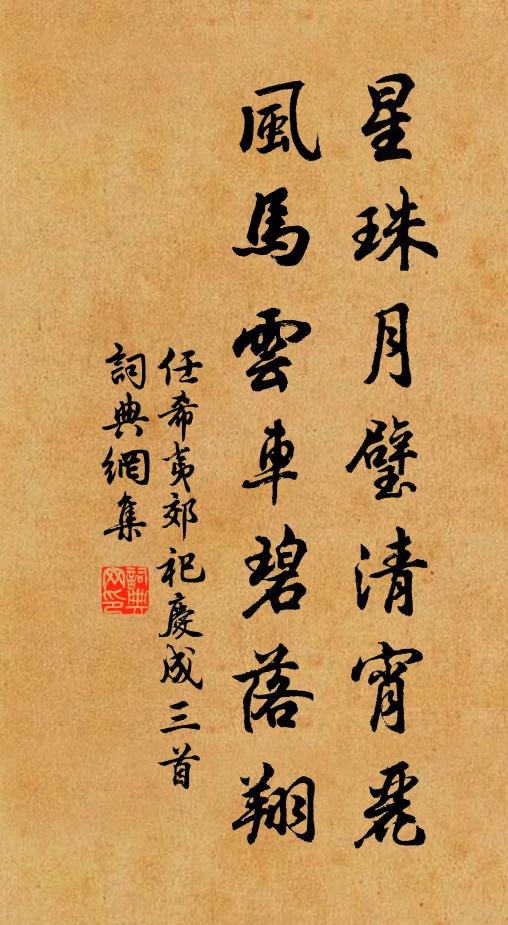 星珠月壁清宵麗
風馬雲車碧落翔
任希夷郊祀慶成三首
詞典網集
詞典网印